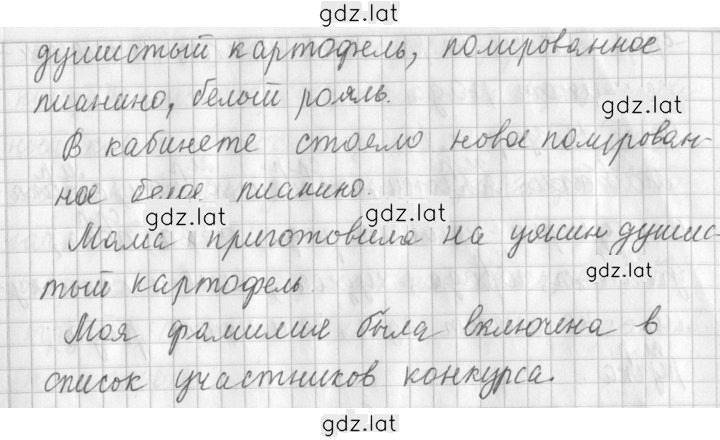 gdz.lat
душистый картофель, полированное
пианино, белый рояль.
gdz.lat
В кабинете стояло новое полирован-
ное белое пианино.
gdz.lat
gdz.lat
Мама приготовила на ужин душис-
тый картофель.
gdz.lat
Моя фамилия была включена в
список участников конкурса.
gdz.lat